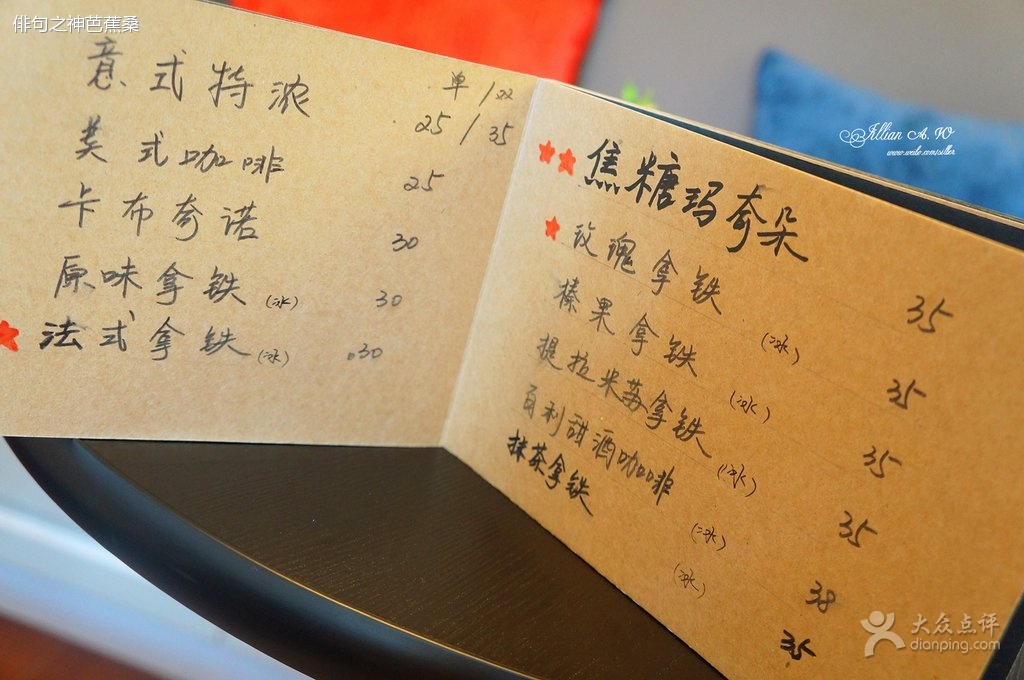 俳句之神芭蕉桑
意式特浓 单/双
25/35
美式咖啡 25
卡布奇诺 30
原味拿铁(冰) 30
法式拿铁(冰) 30
焦糖玛奇朵 35
玫瑰拿铁(冰) 35
榛果拿铁(冰) 35
提拉米苏拿铁(冰) 35
百利甜酒咖啡(冰) 38
抹茶拿铁(冰) 35
Jllian A. W
大众点评
dianping.com